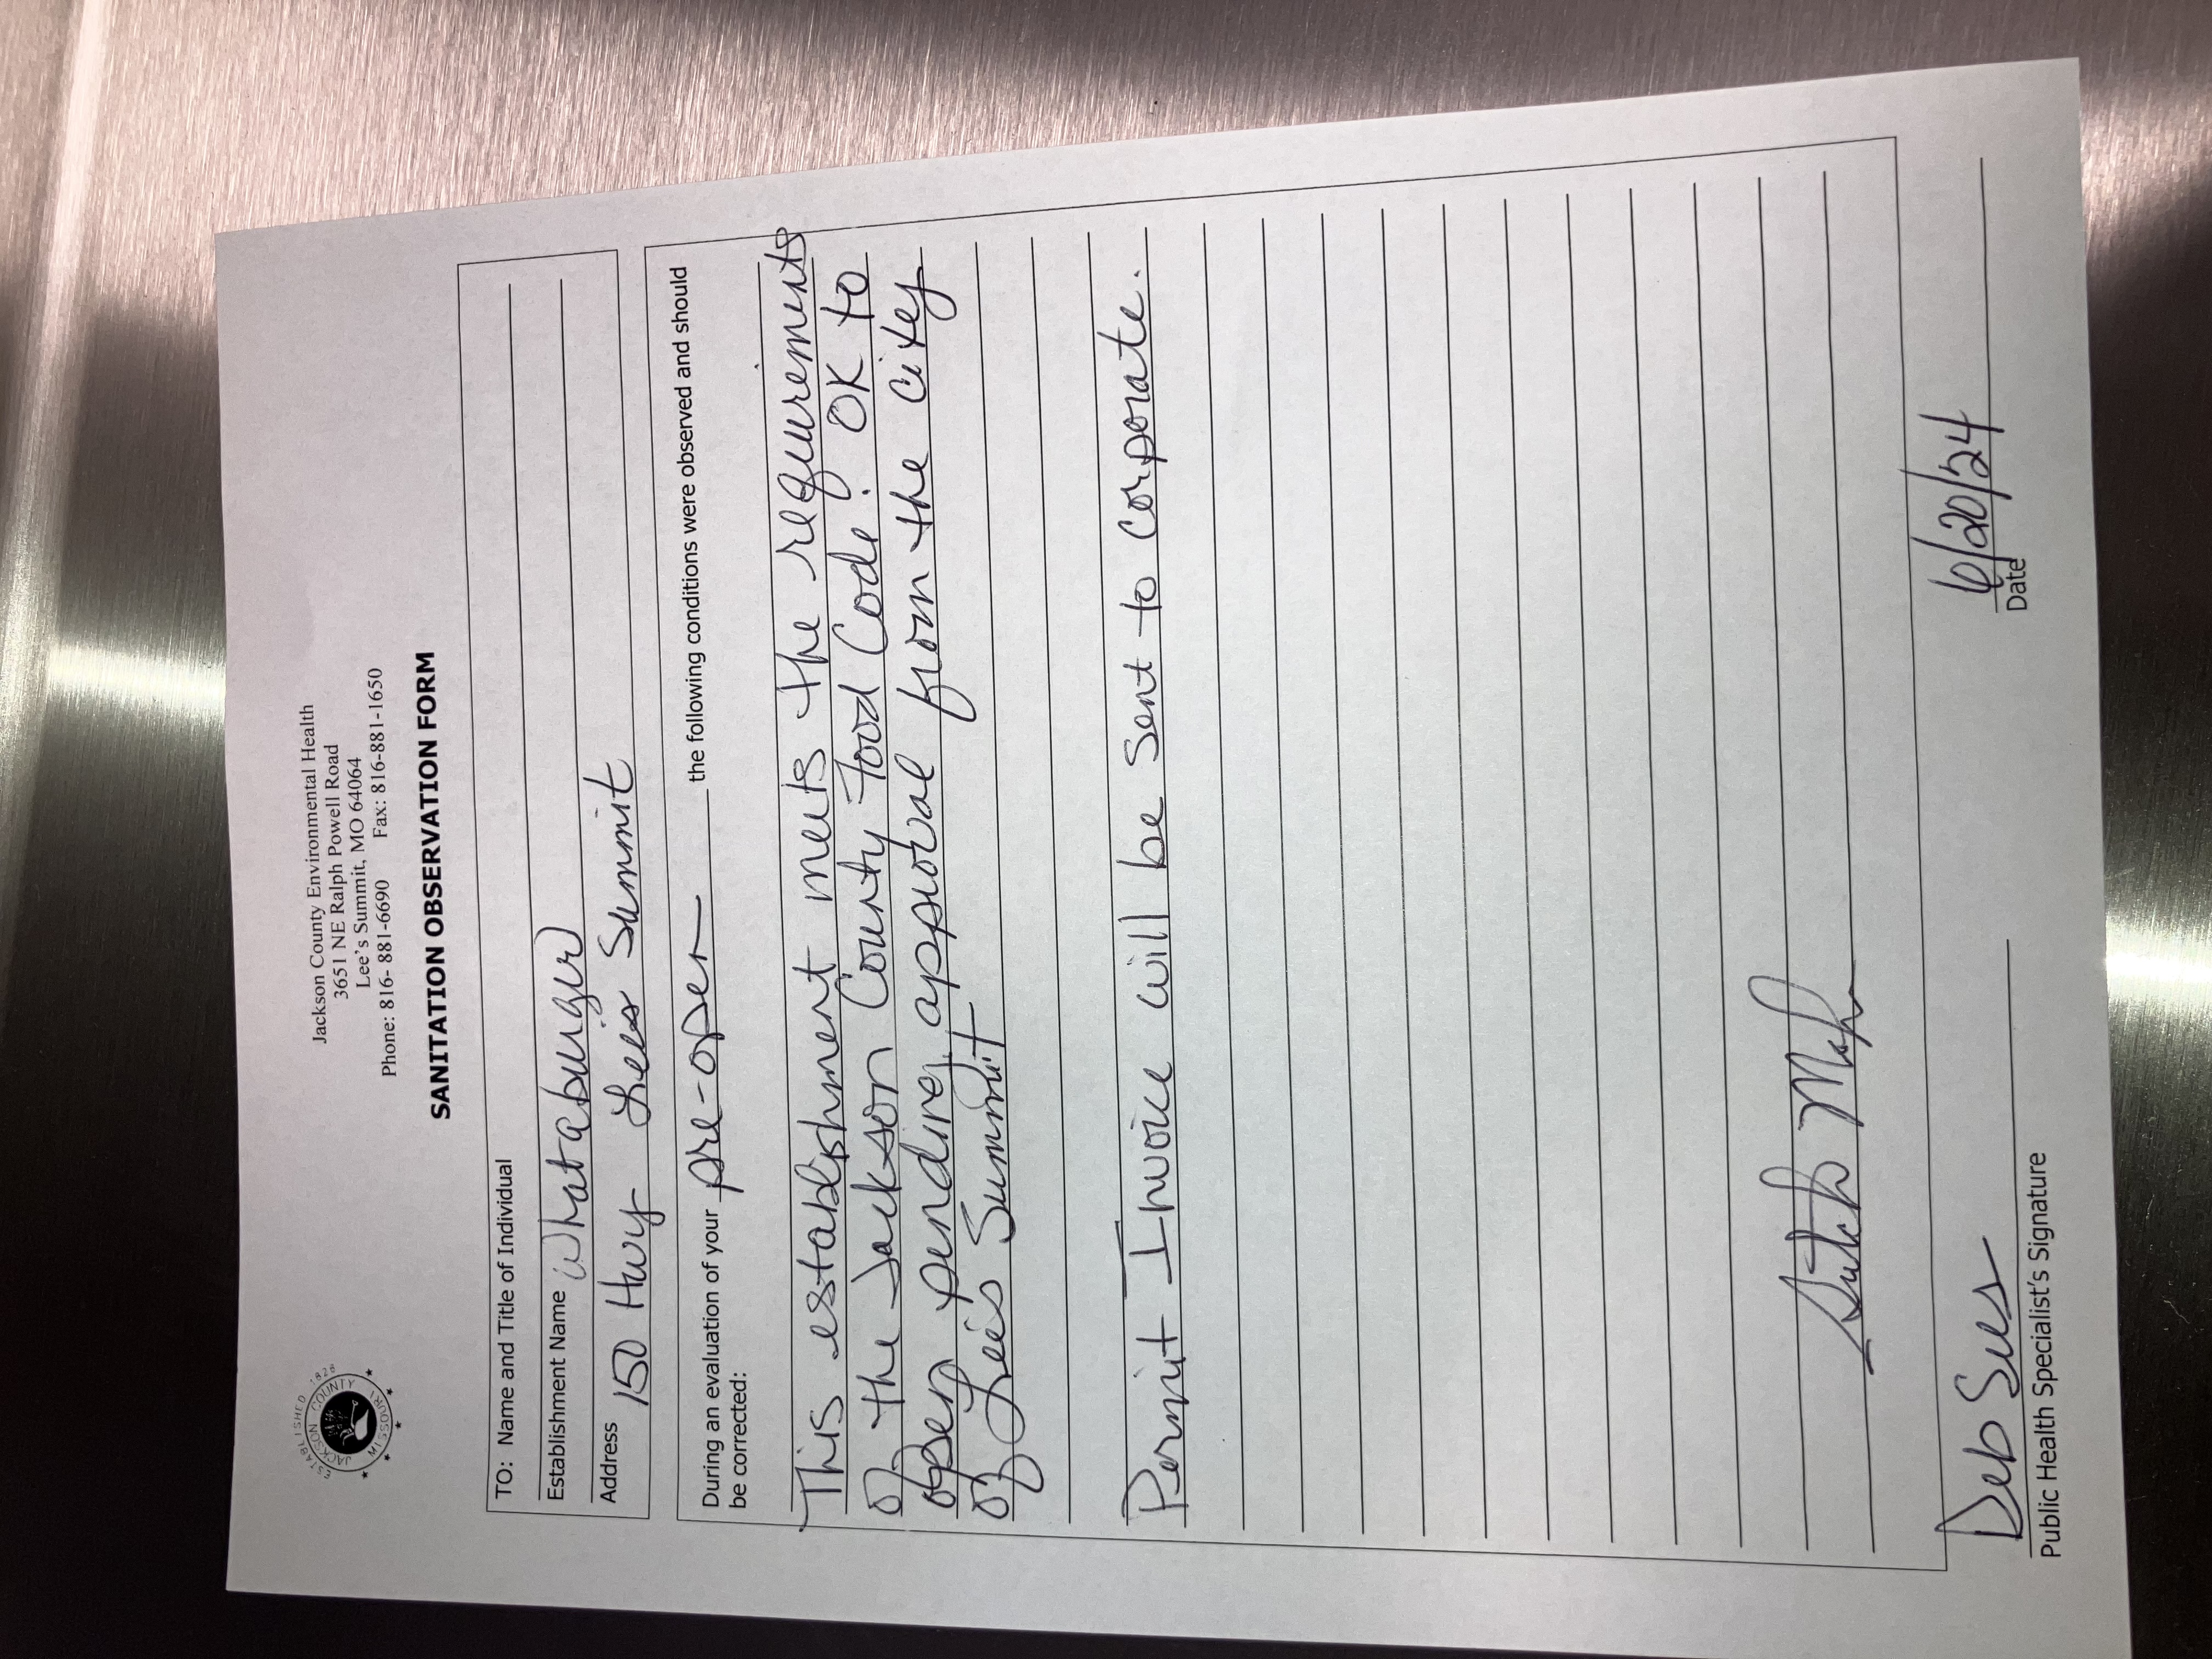 ESTABLISHED 1826
JACKSON COUNTY
MISSOURI
Jackson County Environmental Health
3651 NE Ralph Powell Road
Lee's Summit, MO 64064
Phone: 816- 881-6690 Fax: 816-881-1650
SANITATION OBSERVATION FORM
TO: Name and Title of Individual
Establishment Name Whataburger
Address 150 Hwy Lee's Summit
During an evaluation of your pre-open the following conditions were observed and should
be corrected:
This establishment meets the requirements
of the Jackson County Food Code. OK to
open pending approval from the city
of Lee's Summit
Permit Invoice will be sent to corporate.
Deb Sees
Public Health Specialist's Signature
6/20/24
Date